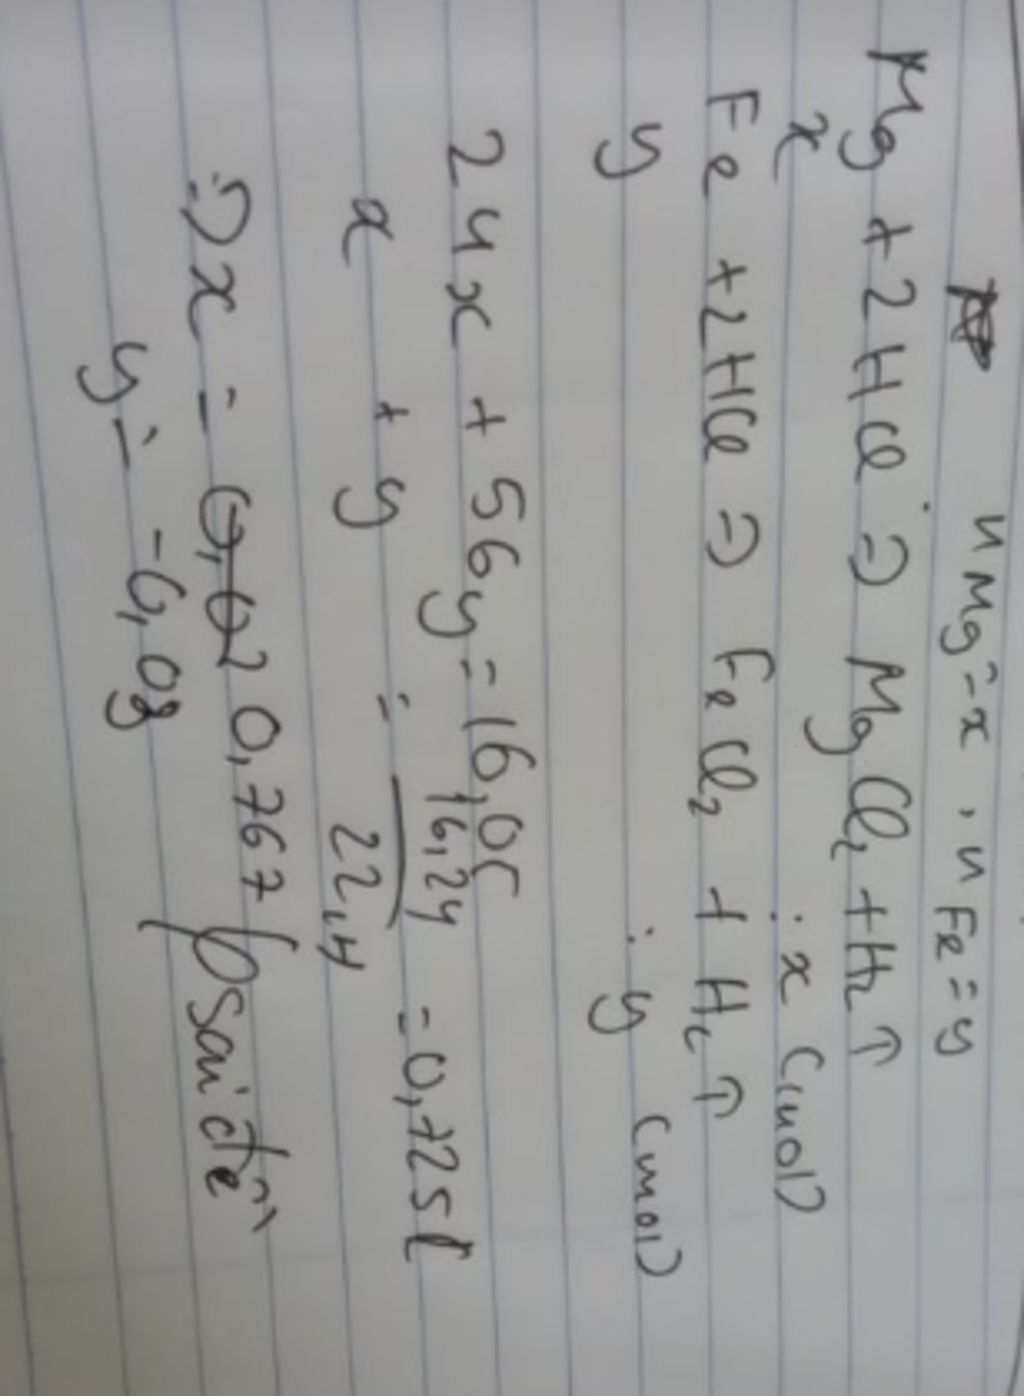 nMg = x , nFe = y
Mg + 2HCl => MgCl2 + H2 ↑
x : x (mol)
Fe + 2HCl => FeCl2 + H2 ↑
y : y (mol)
24x + 56y = 16,05
x + y = 16,24 / 22,4 = 0,725
=> x = 0,767
y = -0,08
sai đề